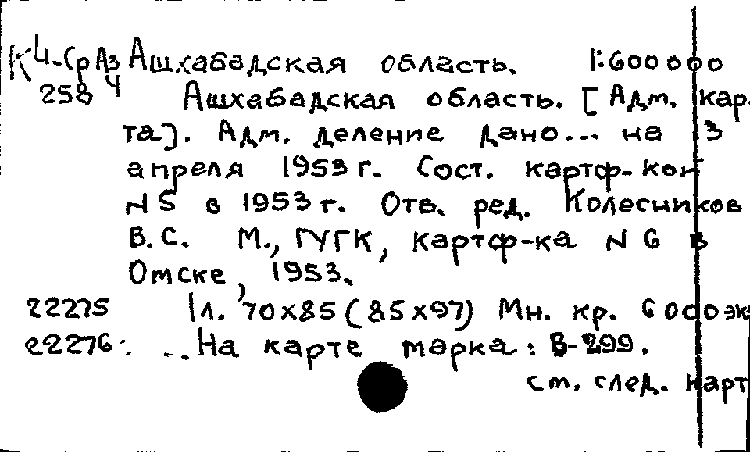 К4-СрАз Ашхабадская область. 1:600000
258 4 Ашхабадская область. [Адм. кар-
та]. Адм. деление дано... на 3
апреля 1953 г. Сост. картф-кой
N 5 в 1953 г. Отв. ред. Колесников
В.С. М., ГУГК, картф-ка N 6 в
Омске, 1953.
22275 1 л. 70х85 (85х97) Мн. кр. 6000 эк
22276. ... На карте марка: В-299.
см. след. карт